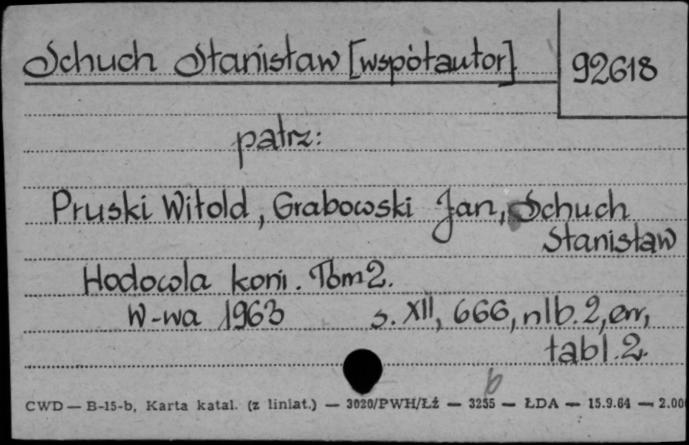 Schuch Stanisław [współautor] 92618
patrz:
Pruski Witold, Grabowski Jan, Schuch
Stanisław
Hodowla koni. Tom 2.
W-wa 1963 s. XII, 666, nlb. 2, err,
tabl. 2.
b
CWD — B-15-b, Karta katal. (z liniat.) — 3020/PWH/Łż — 3255 — ŁDA — 15.9.64 — 2.00